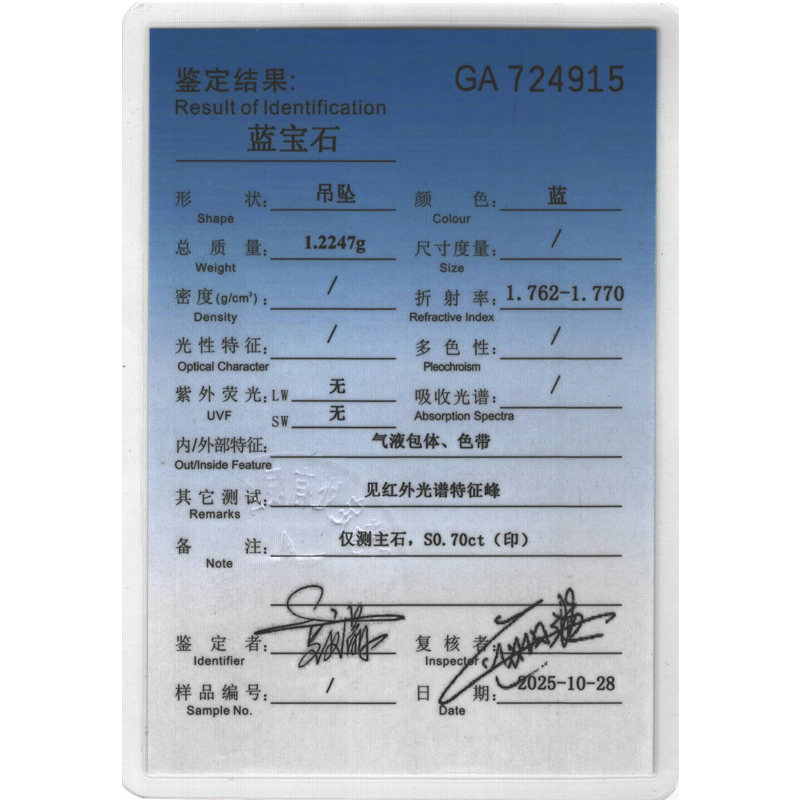 鉴定结果: GA 724915
Result of Identification
蓝宝石
形 状: 吊坠 颜 色: 蓝
Shape Colour
总 质 量: 1.2247g 尺寸度量: /
Weight Size
密 度(g/cm³): / 折 射 率: 1.762-1.770
Density Refractive Index
光性特征: / 多 色 性: /
Optical Character Pleochroism
紫外荧光: LW 无 吸收光谱: /
UVF SW 无 Absorption Spectra
内/外部特征: 气液包体、色带
Out/Inside Feature
其它测试: 见红外光谱特征峰
Remarks
备 注: 仅测主石,S0.70ct(印)
Note
鉴 定 者: 复 核 者:
Identifier Inspector
样品编号: / 日 期: 2025-10-28
Sample No. Date